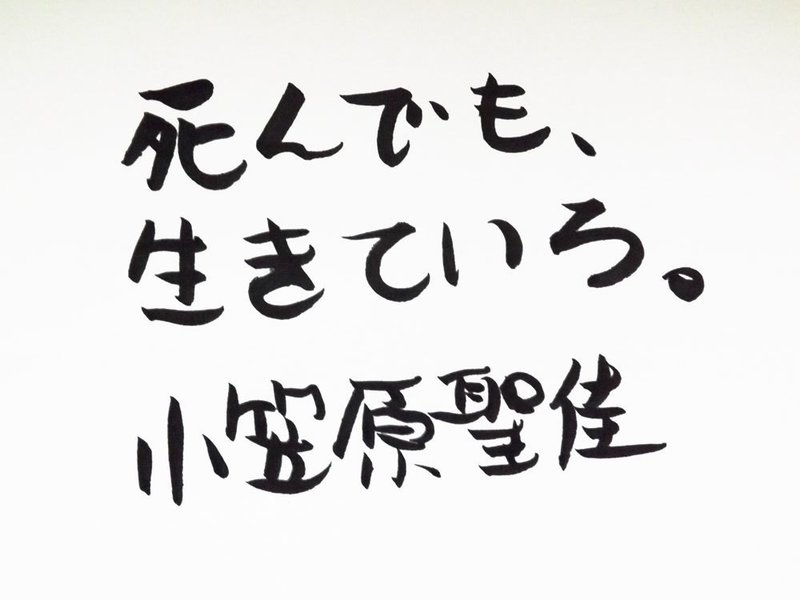 死んでも、
生きていろ。
小笠原聖佳